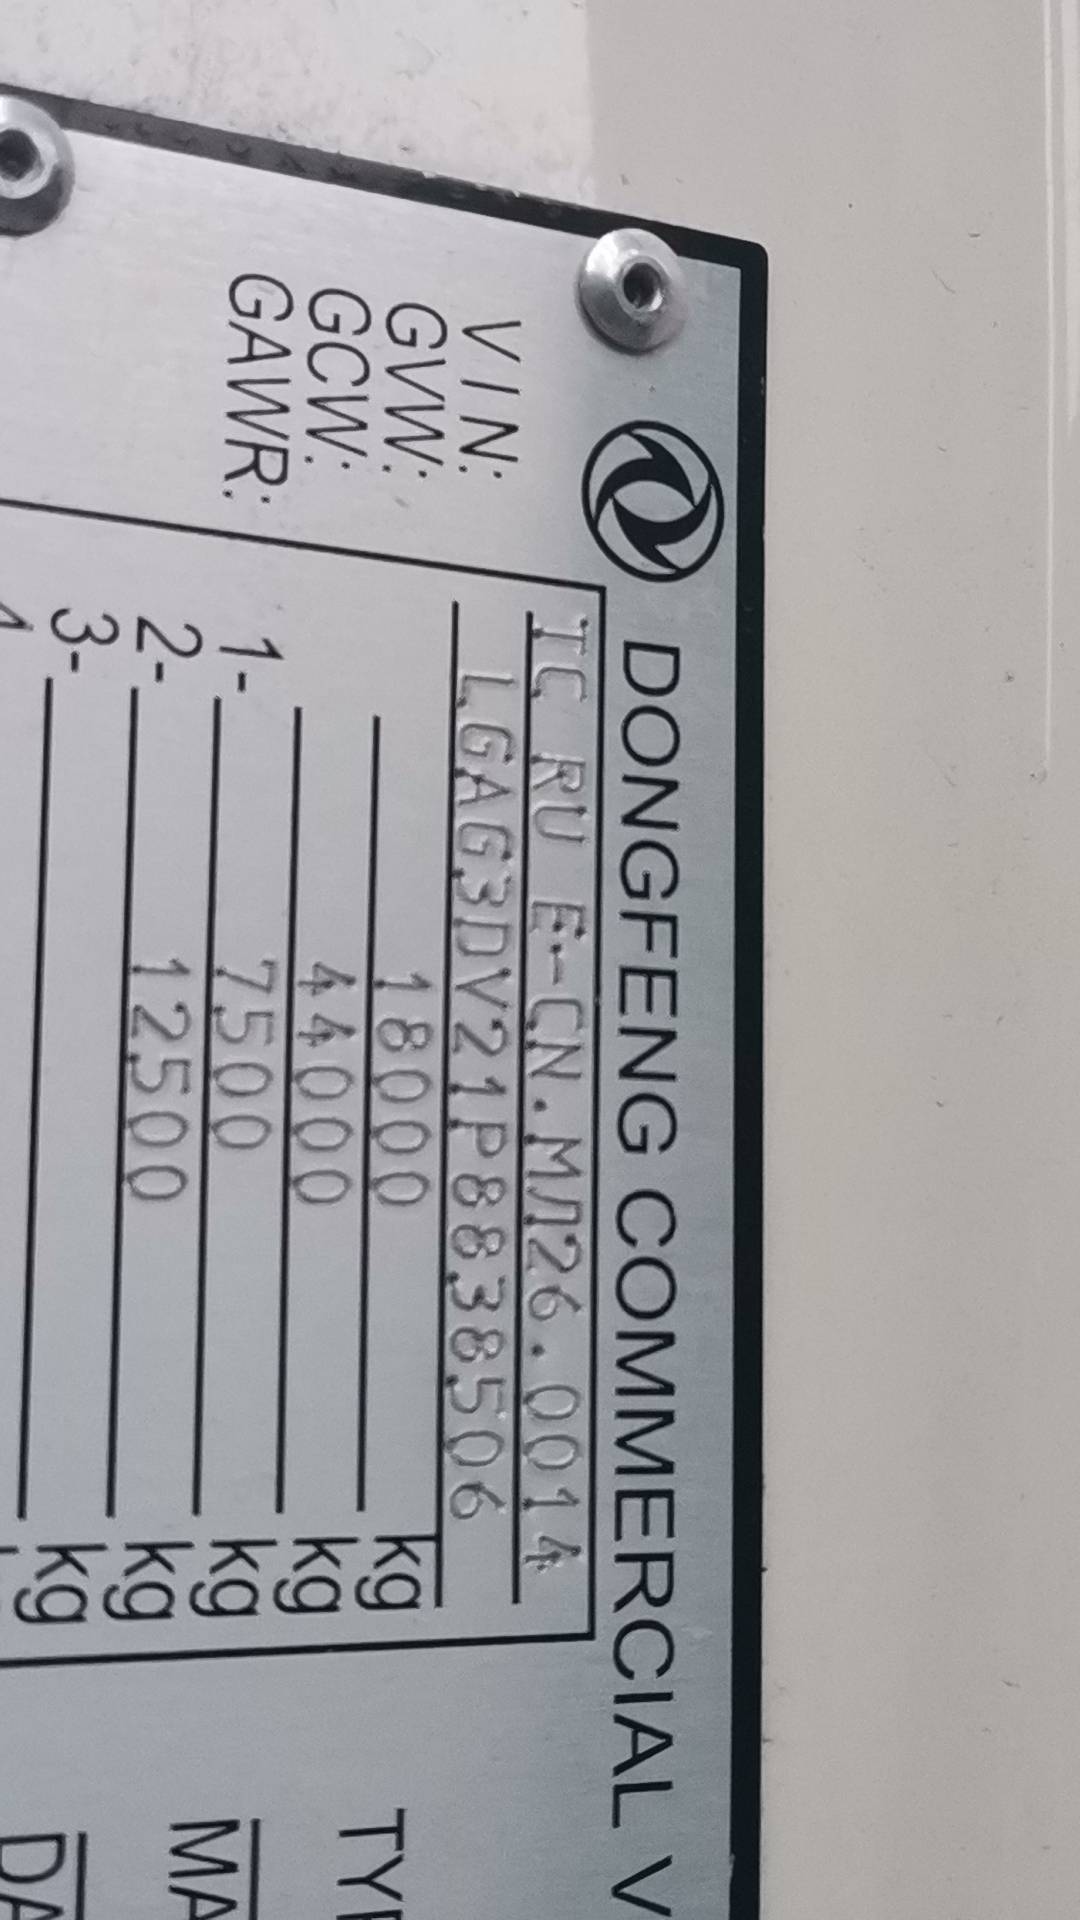 DONGFENG COMMERCIAL V
TC RU E-CN.МЛ26.0014
VIN: LGAG3DV21P8838506
GVW: 18000 kg
GCW: 44000 kg
GAWR: 1- 7500 kg
2- 12500 kg
3- kg
TYP
MA
DA